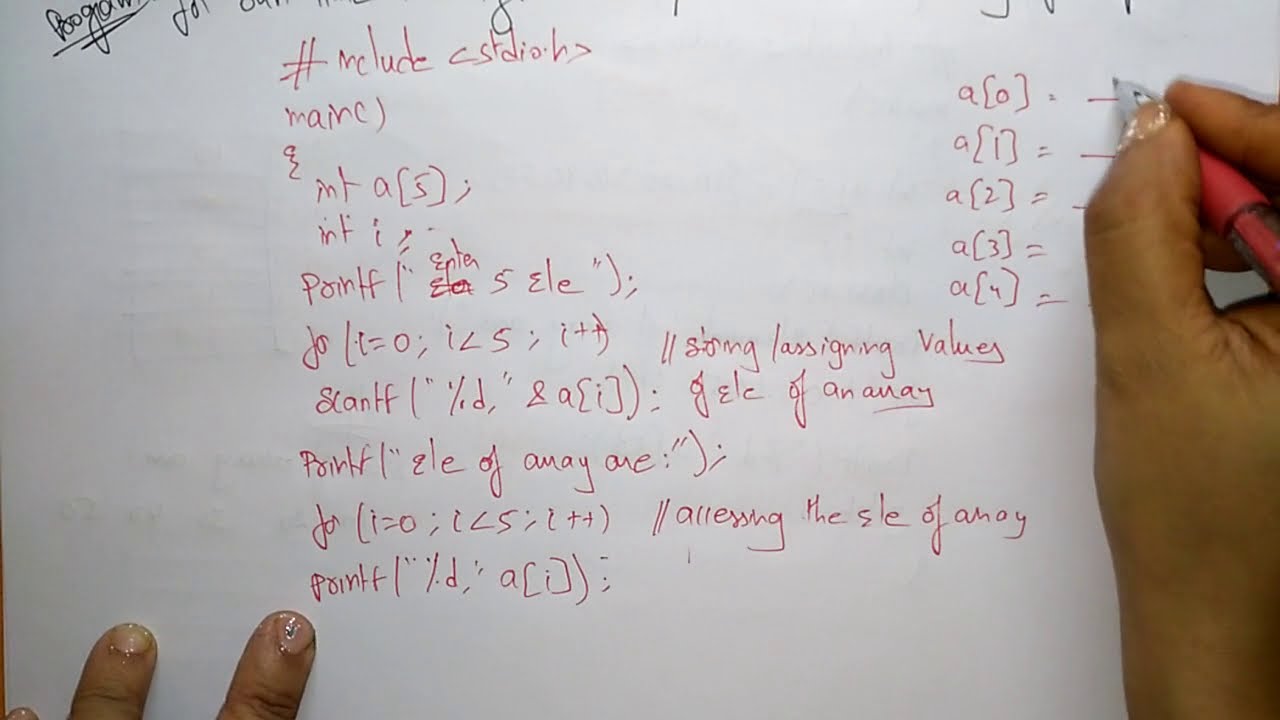 Program for
# include <stdio.h>
main()
{
int a[5];
int i;
printf(" Enter 5 Ele ");
for (i=0; i<5; i++) // storing /assigning values
scanf("%d," &a[i]); of ele of an array
printf("Ele of array are:");
for (i=0; i<5; i++) // accessing the ele of array
printf("%d," a[i]);
a[0] =
a[1] =
a[2] =
a[3] =
a[4] =